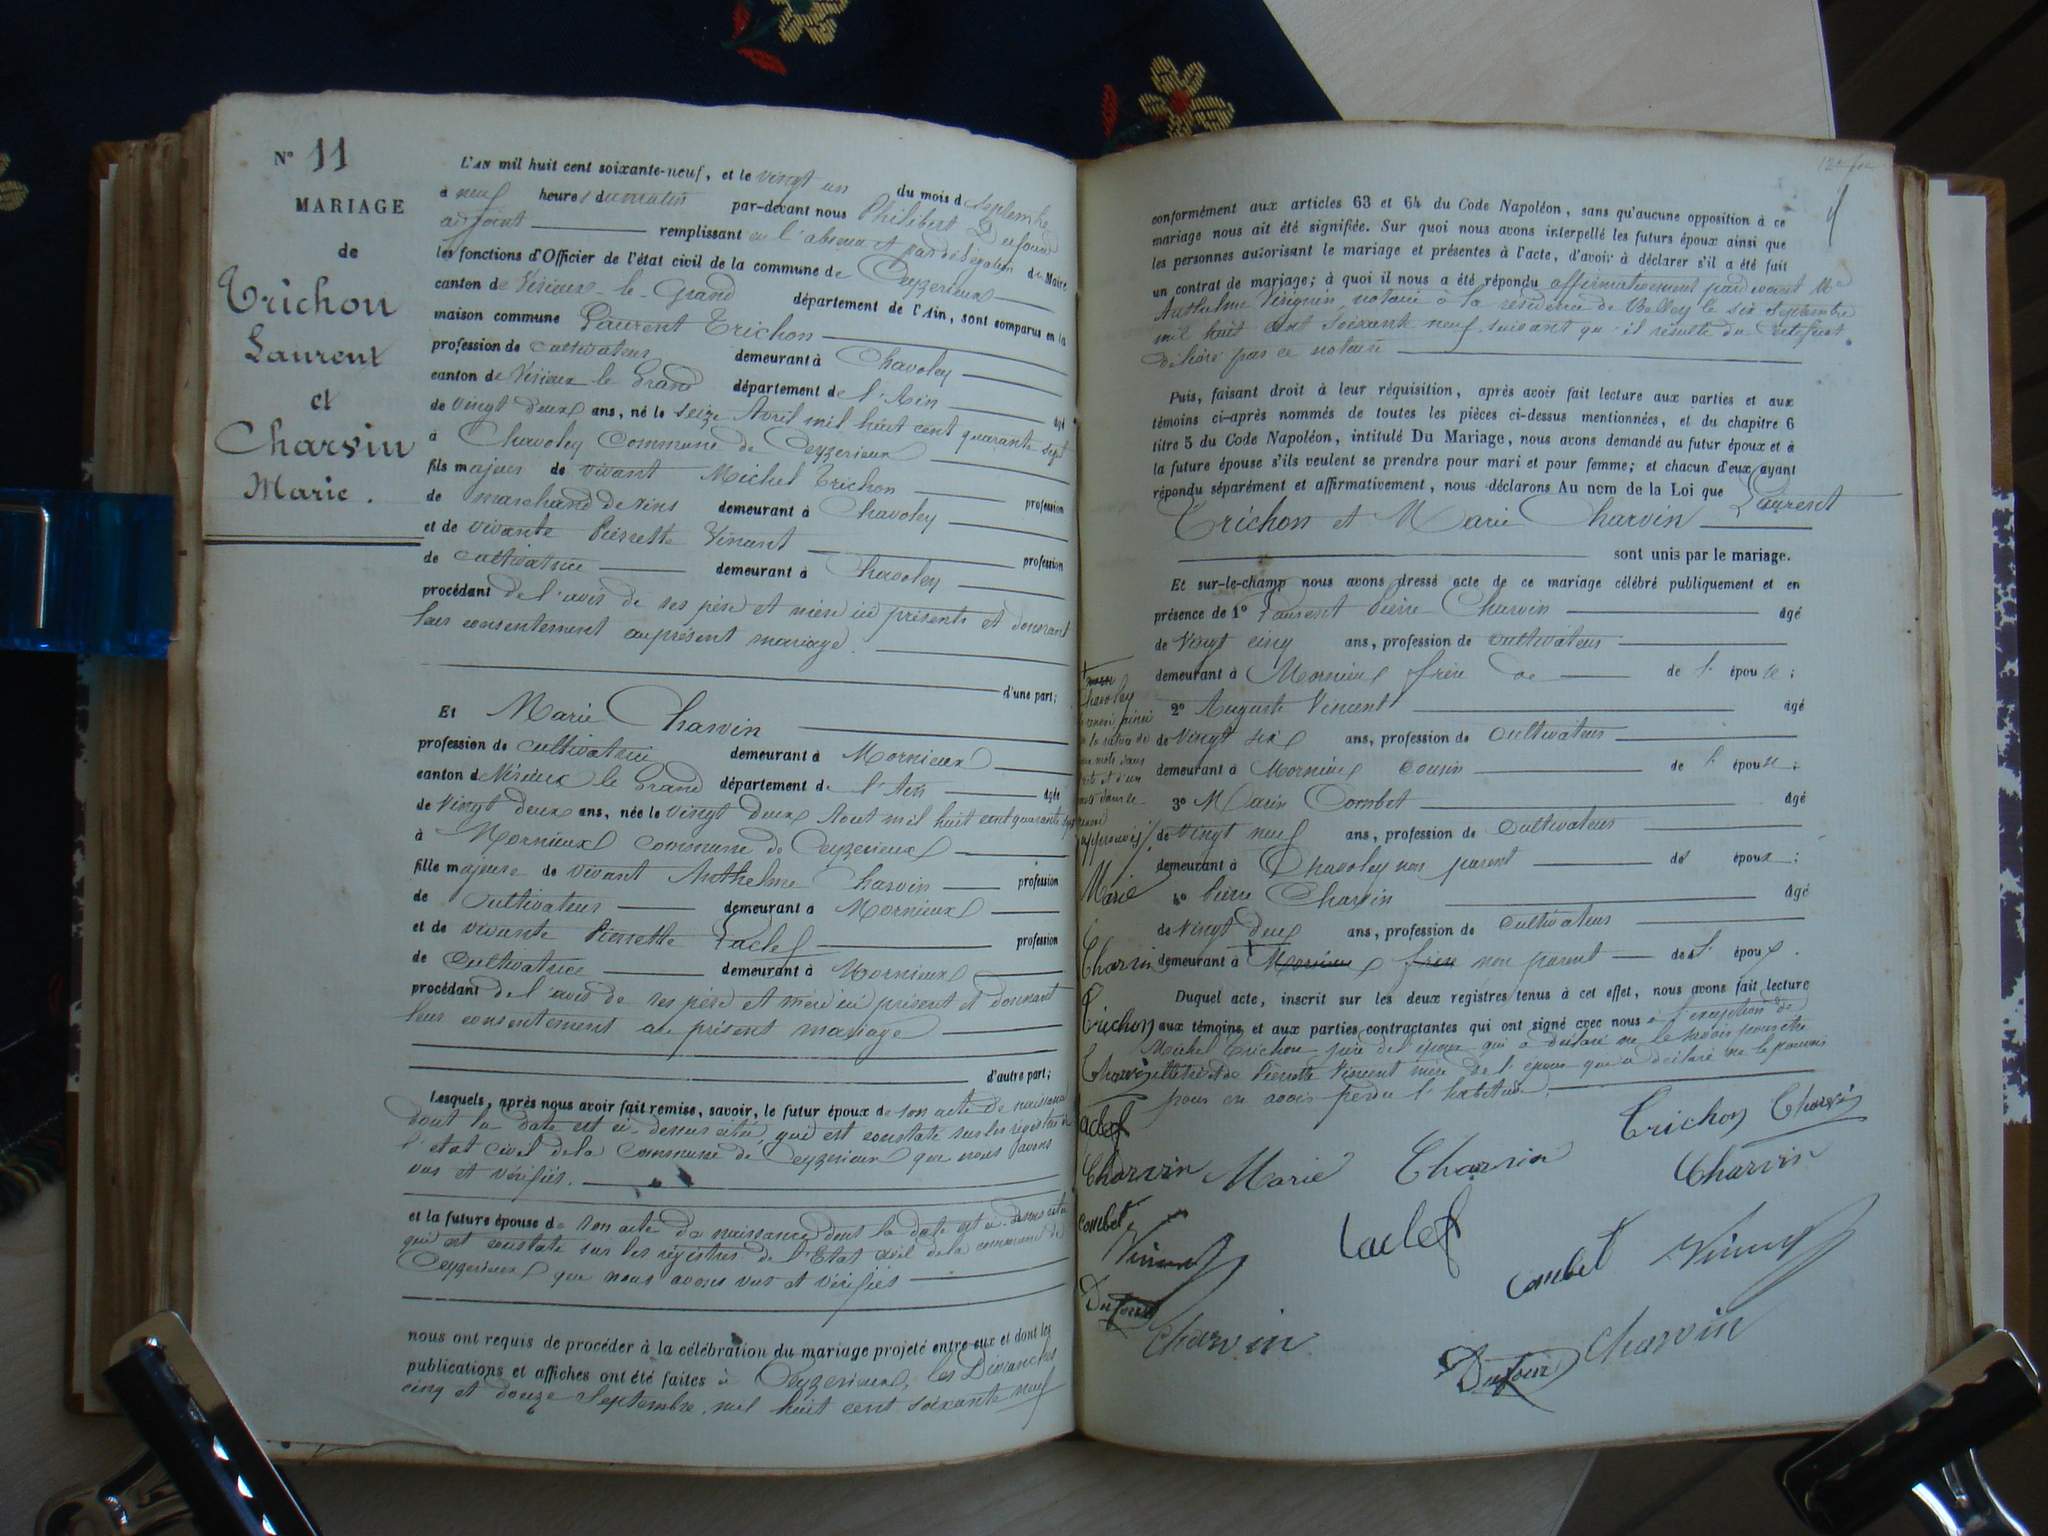 N° 11
MARIAGE
de
Trichon
Laurent
et
Charvin
Marie.
L'AN mil huit cent soixante-neuf, et le vingt un du mois d septembre
à neuf heures du matin par-devant nous Philibert Dufour
adjoint remplissant en l'absence et par délégation du Maire
les fonctions d'Officier de l'état civil de la commune de Ceyzerieux
canton de Virieux-le-Grand département de l'Ain, sont comparus en la
maison commune Laurent Trichon
profession de cultivateur demeurant à Chavoley
canton de Virieux le Grand département de l'Ain âgé
de vingt deux ans, né le seize Avril mil huit cent quarante sept
à Chavoley Commune de Ceyzerieux
fils majeur de vivant Michel Trichon profession
de marchand de vins demeurant à Chavoley
et de vivante Pierrette Vincent profession
de cultivatrice demeurant à Chavoley
procédant de l'avis de ses père et mère ici présents et donnant
leur consentement au présent mariage.
d'une part;
Et Marie Charvin
profession de cultivatrice demeurant à Mornieux
canton d Virieux le Grand département de l'Ain âgée
de vingt deux ans, née le vingt deux Aout mil huit cent quarante sept
à Mornieux commune de Ceyzerieux
fille majeure de vivant Anthelme Charvin profession
de cultivateur demeurant à Mornieux
et de vivante Pierrette Laclef profession
de cultivatrice demeurant à Mornieux
procédant de l'avis de ses père et mère ici présent et donnant
leur consentement au présent mariage
d'autre part;
Lesquels, après nous avoir fait remise, savoir, le futur époux de son acte de naissance
dont la date est ci-dessus citée, qui est constaté sur les registres de
l'état civil de la Commune de Ceyzerieux que nous avons
vus et vérifiés.
et la future épouse de son acte de naissance dont la date est ci-dessus citée
qui est constaté sur les registres de l'Etat civil de la commune de
Ceyzerieux que nous avons vus et vérifiés
nous ont requis de procéder à la célébration du mariage projeté entre eux et dont les
publications et affiches ont été faites à Ceyzerieux, les Dimanches
cinq et douze Septembre mil huit cent soixante neuf
conformément aux articles 63 et 64 du Code Napoléon, sans qu'aucune opposition à ce
mariage nous ait été signifiée. Sur quoi nous avons interpellé les futurs époux ainsi que
les personnes autorisant le mariage et présentes à l'acte, d'avoir à déclarer s'il a été fait
un contrat de mariage; à quoi il nous a été répondu affirmativement pardevant Me
Anthelme notaire à la résidence de Belley le six septembre
mil huit cent soixante neuf suivant qu'il résulte du certificat
délivré par ce notaire
Puis, faisant droit à leur réquisition, après avoir fait lecture aux parties et aux
témoins ci-après nommés de toutes les pièces ci-dessus mentionnées, et du chapitre 6
titre 5 du Code Napoléon, intitulé Du Mariage, nous avons demandé au futur époux et à
la future épouse s'ils veulent se prendre pour mari et pour femme; et chacun d'eux ayant
répondu séparément et affirmativement, nous déclarons Au nom de la Loi que Laurent
Trichon et Marie Charvin
sont unis par le mariage.
Et sur-le-champ nous avons dressé acte de ce mariage célébré publiquement et en
présence de 1° Laurent Pierre Charvin âgé
de vingt cinq ans, profession de cultivateur
demeurant à Mornieux frère de de l'épouse;
2° Auguste Vincent âgé
de vingt six ans, profession de cultivateur
demeurant à Mornieux cousin de l'épouse;
3° Marin Combet âgé
de vingt neuf ans, profession de cultivateur
demeurant à Chavoley non parent des époux;
4° Pierre Charvin âgé
de vingt deux ans, profession de cultivateur
demeurant à Mornieux frère non parent de l'époux.
Duquel acte, inscrit sur les deux registres tenus à cet effet, nous avons fait lecture
aux témoins et aux parties contractantes qui ont signé avec nous à l'exception de
Michel Trichon père de l'époux qui a déclaré ne le savoir pour être
illettré et de Pierrette Vincent mère de l'époux qui a déclaré ne le pouvoir
pour en avoir perdu l'habitude.
Chavoley
approuvés
Marie
Charvin
Trichon
Charvin
Laclef
Charvin
Combet
Vincent
Dufour
Charvin
Trichon Charvin
Marie Charvin Charvin
Laclef
Combet Vincent
Dufour Charvin